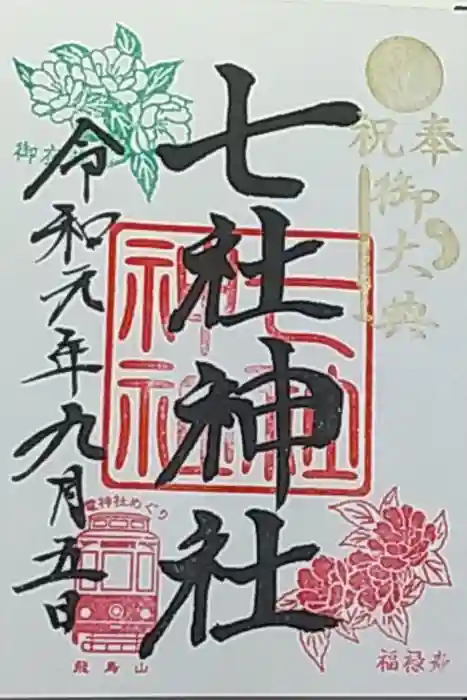 奉祝
御大典
七社神社
七社神社
令和元年九月五日
福禄寿
都電神社めぐり
飛鳥山